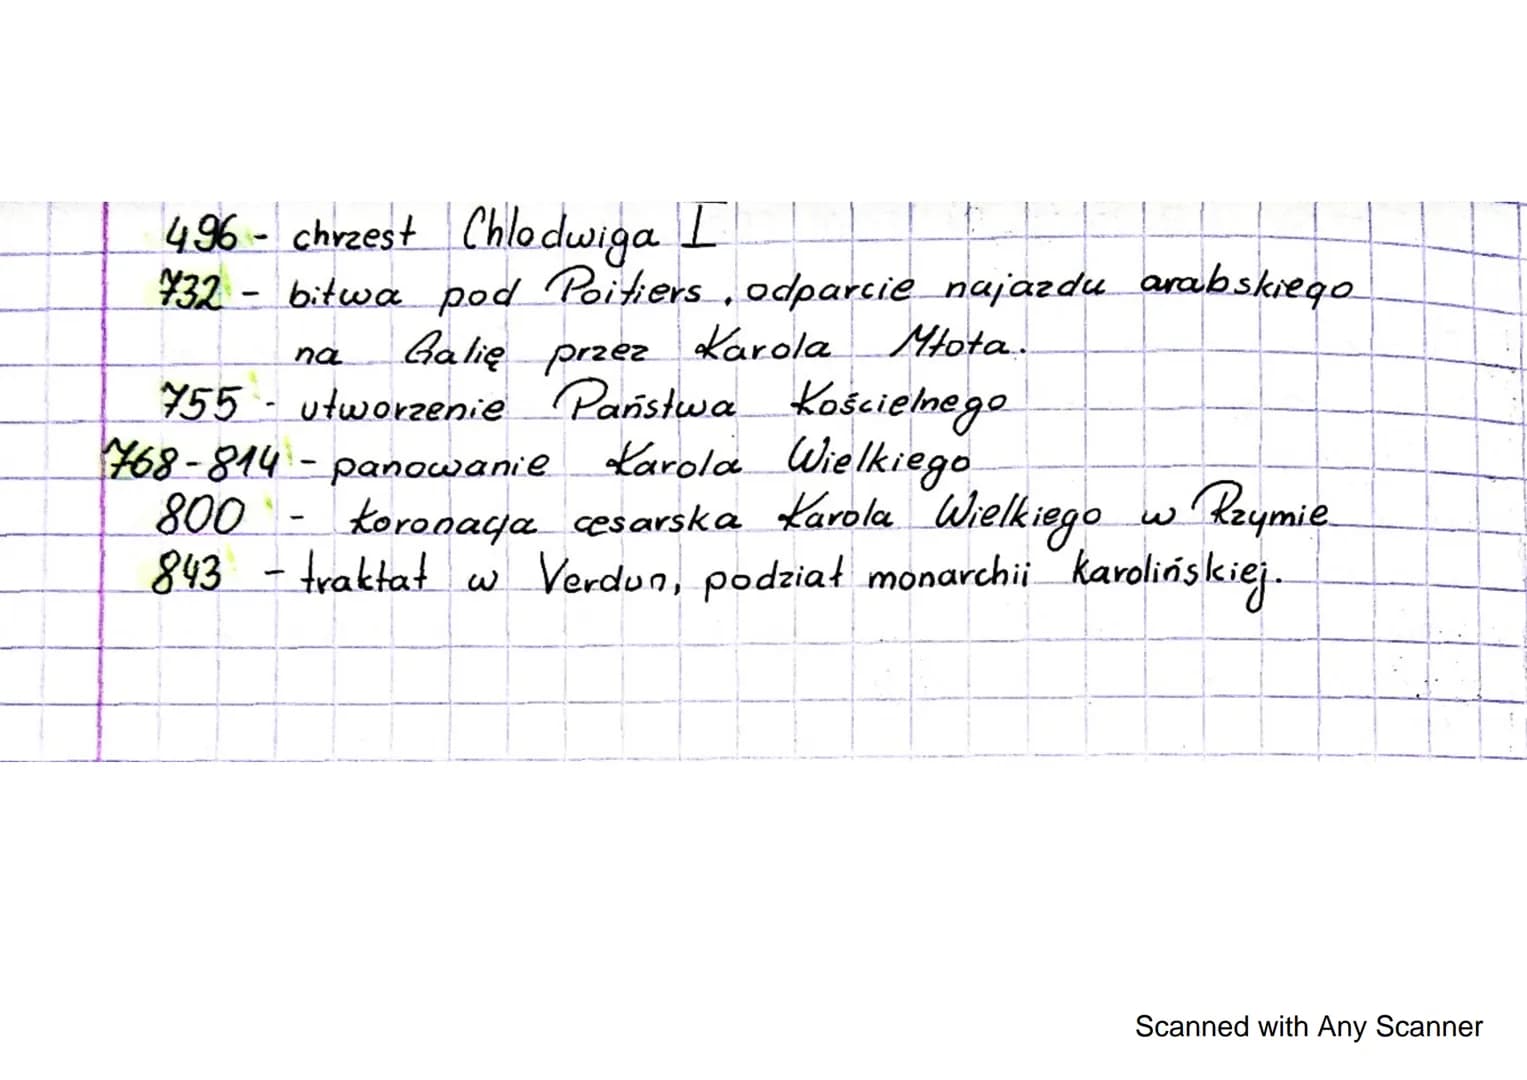 496 - chrzest Chlodwiga I
732 - bitwa pod Poitiers, odparcie najazdu arabskiego
na Galię przez Karola Młota.
755 - utworzenie Państwa Kościelnego
768-814 - panowanie Karola Wielkiego
800 - koronacja cesarska Karola Wielkiego w Rzymie
843 - traktat w Verdun, podział monarchii karolińskiej.
Scanned with Any Scanner